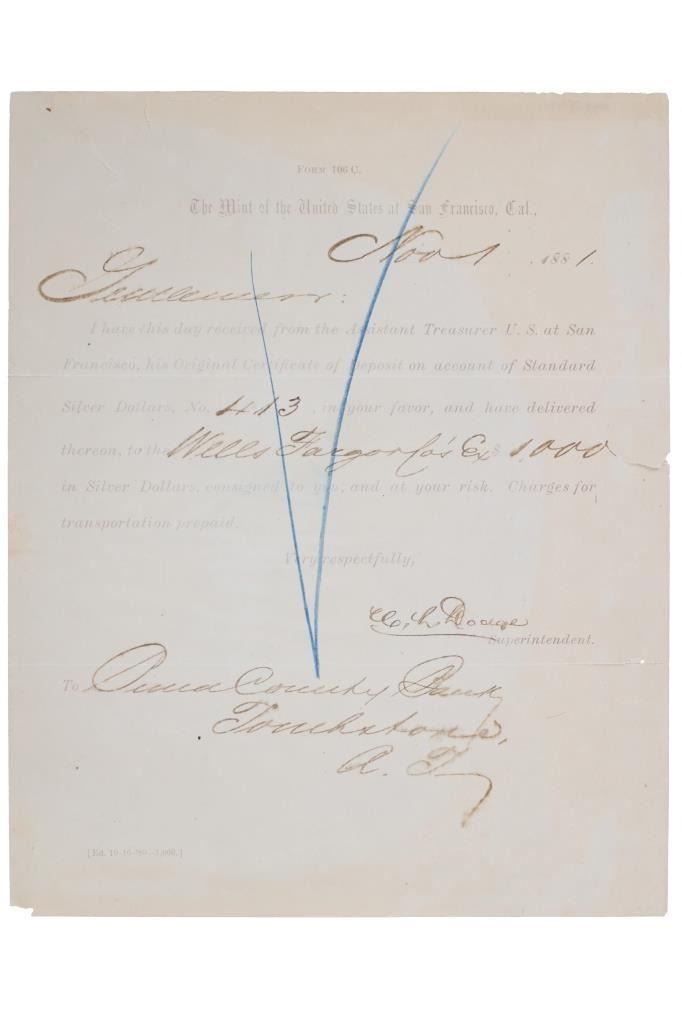 Form 106 C.
The Mint of the United States at San Francisco, Cal.,
Nov 1 1881.
Gentlemen:
I have this day received from the Assistant Treasurer U. S. at San
Francisco, his Original Certificate of Deposit on account of Standard
Silver Dollars, No. 413, in your favor, and have delivered
thereon, to the Wells Fargo & Co's Ex $ 1,000
in Silver Dollars, consigned to you, and at your risk. Charges for
transportation prepaid.
Very respectfully,
Dodge
Superintendent.
To Pima County Bank
Tombstone,
A. T.
[Ed. 10-16-'80—3,000.]